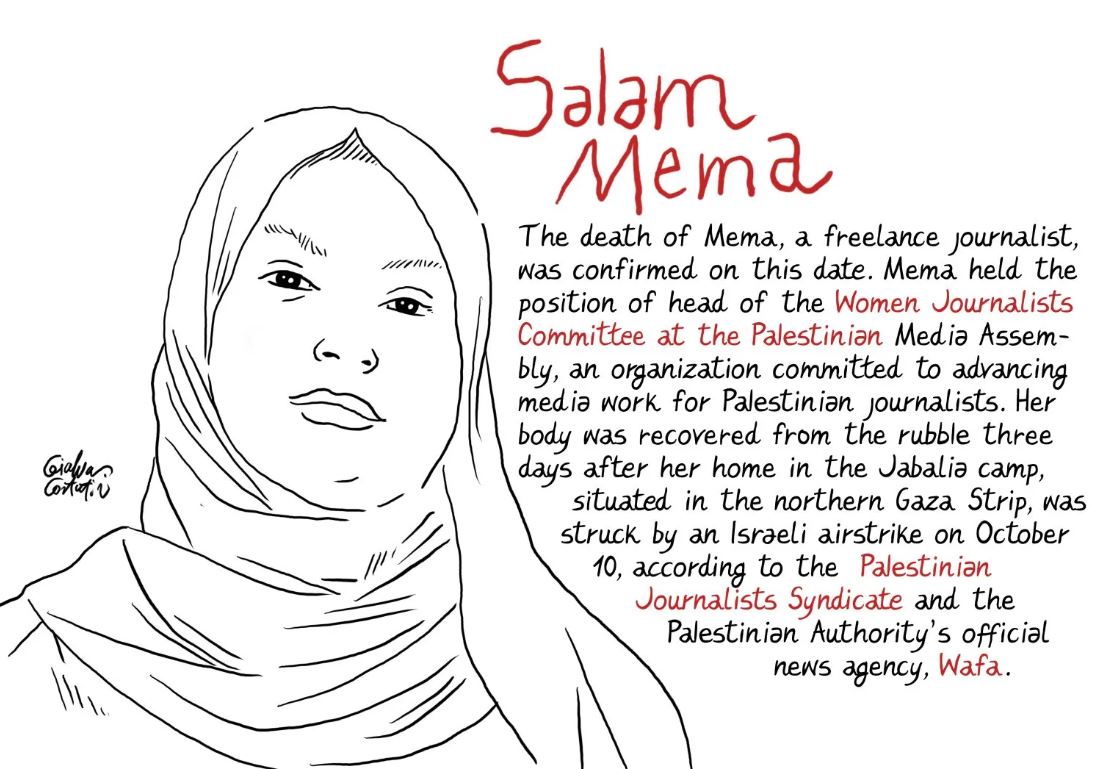 Salam
Mema
The death of Mema, a freelance journalist,
was confirmed on this date. Mema held the
position of head of the Women Journalists
Committee at the Palestinian Media Assem-
bly, an organization committed to advancing
media work for Palestinian journalists. Her
body was recovered from the rubble three
days after her home in the Jabalia camp,
situated in the northern Gaza Strip, was
struck by an Israeli airstrike on October
10, according to the Palestinian
Journalists Syndicate and the
Palestinian Authority's official
news agency, Wafa.